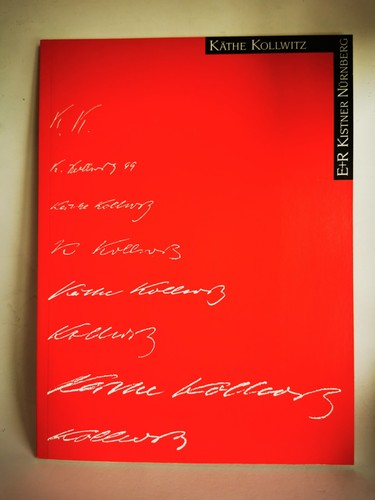 KÄTHE KOLLWITZ
E+R KISTNER NÜRNBERG
K. K.
K. Kollwitz 99
Käthe Kollwitz
K Kollwitz
Käthe Kollwitz
Kollwitz
Käthe Kollwitz
Kollwitz